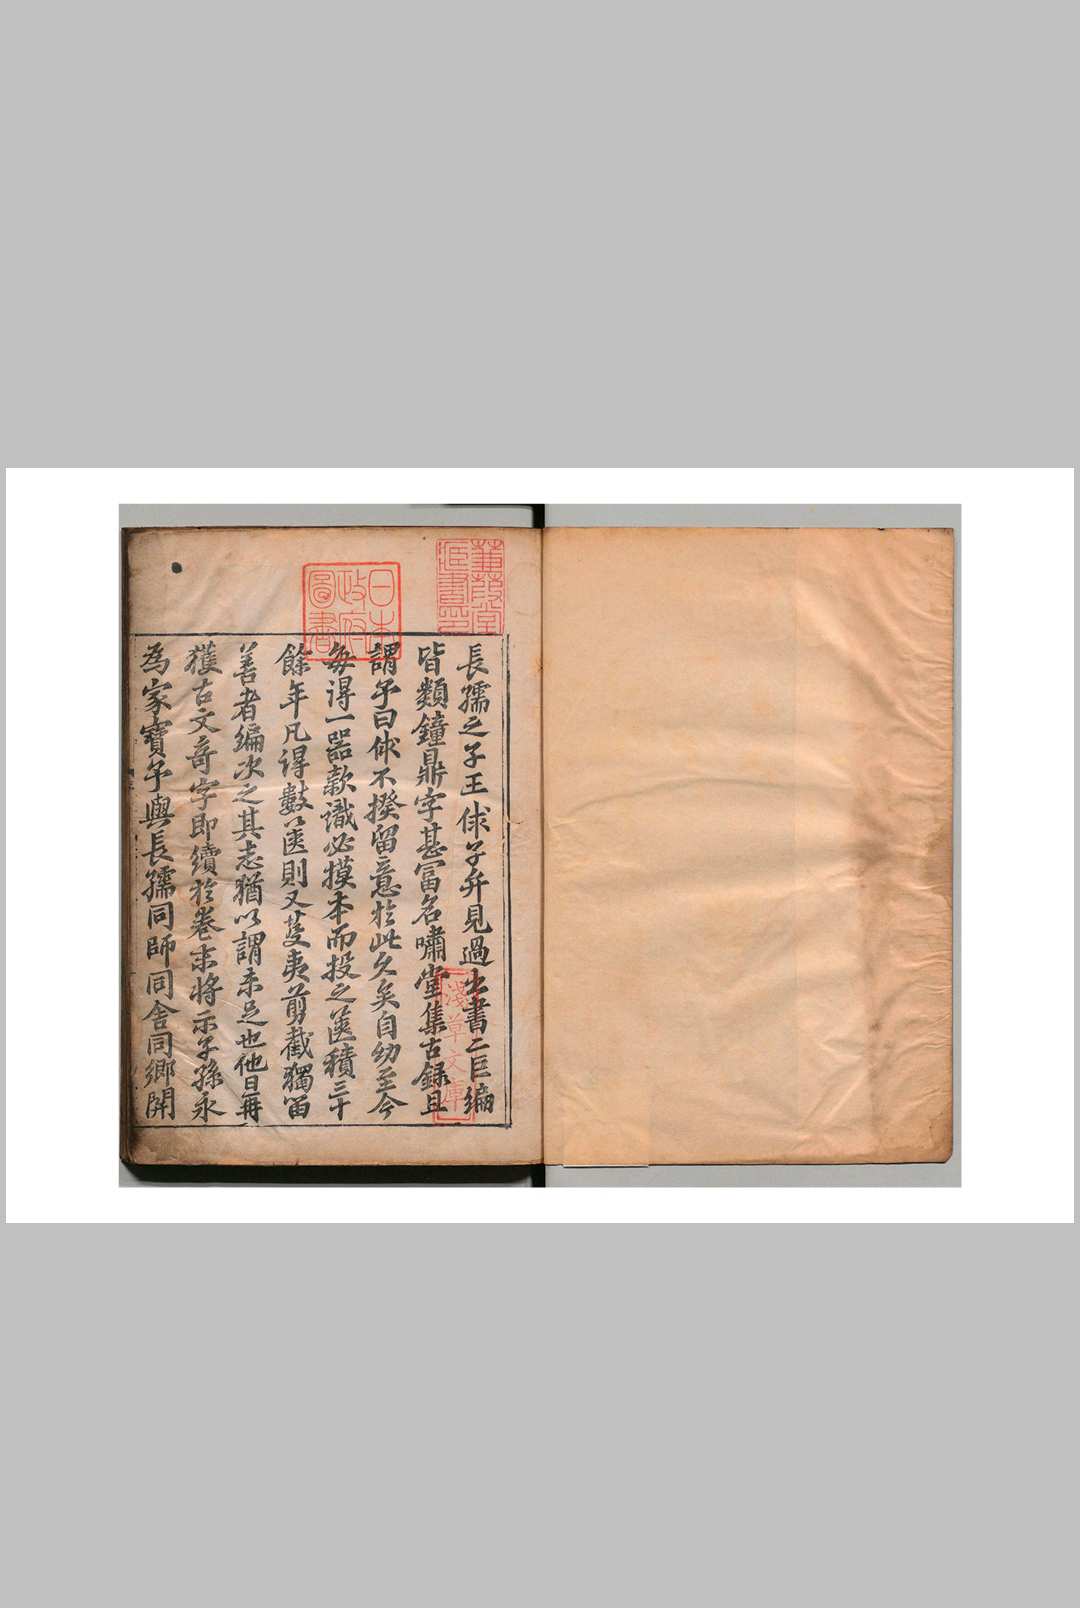 長孺之子王俅子弁見過出書二巨編
皆類鐘鼎字甚富名嘯堂集古錄且
謂予曰俅不揆留意於此久矣自幼至今
每得一器款識必摸本而投之篋積三十
餘年凡得數篋則又芟夷剪截獨留
善者編次之其志猶以謂未足也他日再
獲古文奇字即續於卷末將示子孫永
為家寶予與長孺同師同舍同鄉開
蒹葭堂
藏書印
日本
政府
圖書
淺草文庫